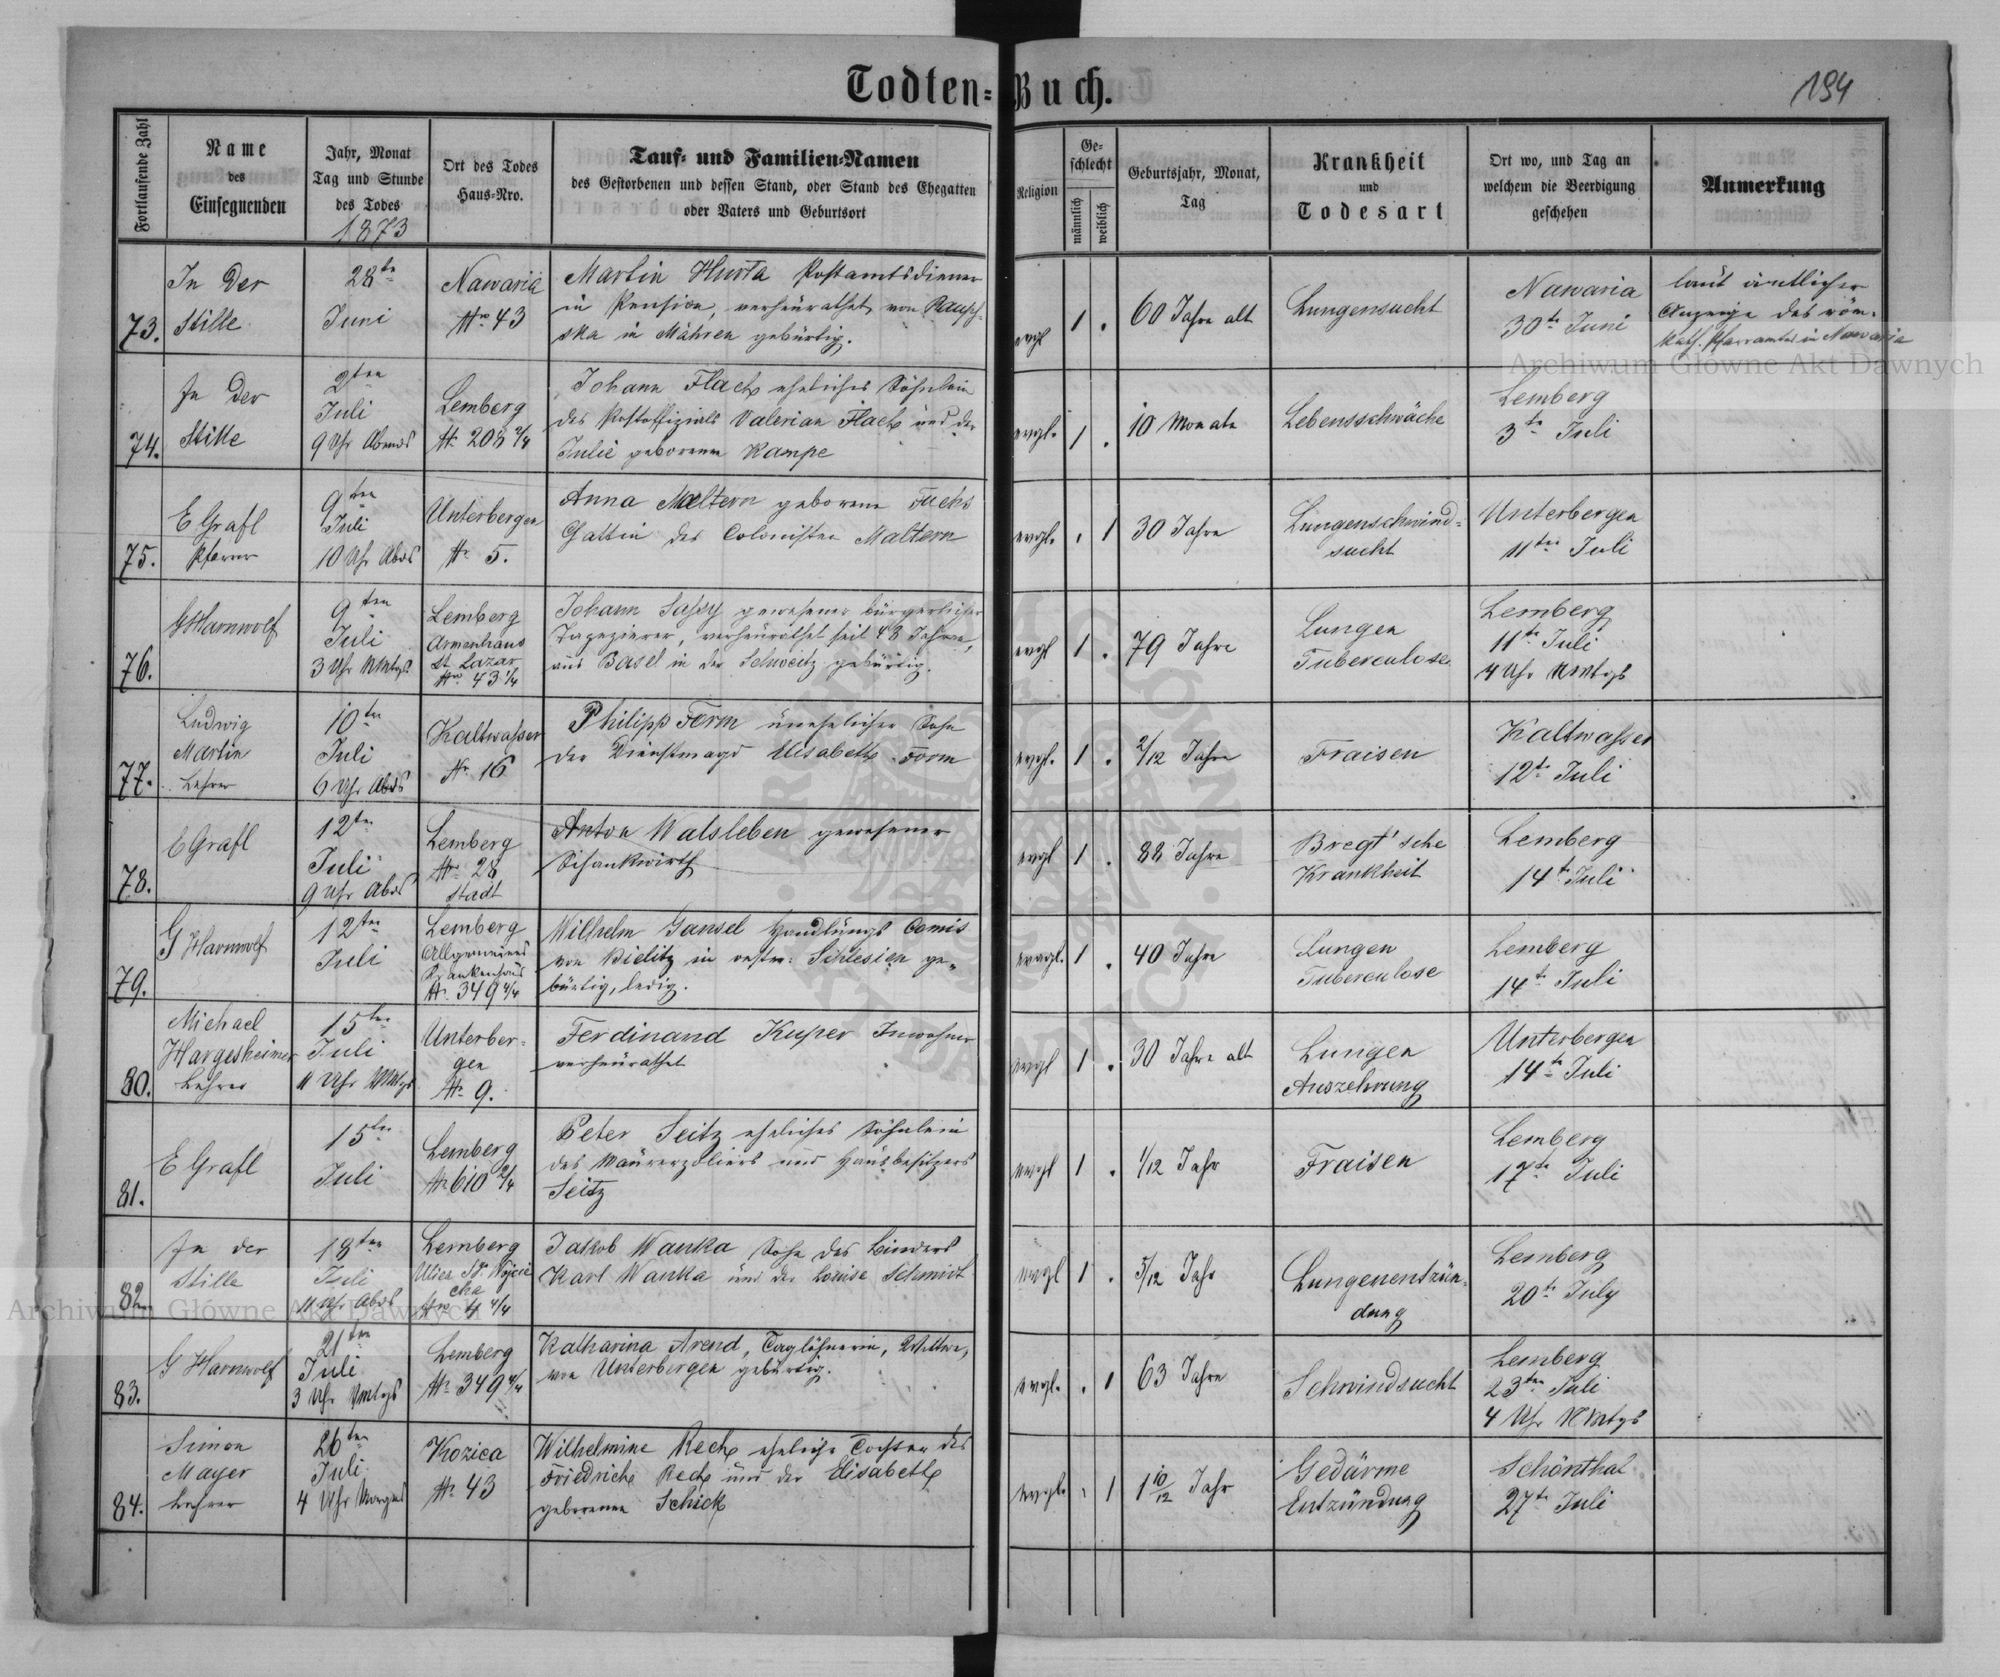 Todten-Buch.
194
Fortlaufende Zahl
Name
des
Einsegnenden
Jahr, Monat
Tag und Stunde
des Todes
1873
Ort des Todes
Haus-Nro.
Tauf- und Familien-Namen
des Gestorbenen und dessen Stand, oder Stand des Ehegatten
oder Vaters und Geburtsort
Religion
Ge-
schlecht
männlich
weiblich
Geburtsjahr, Monat,
Tag
Krankheit
und
Todesart
Ort wo, und Tag an
welchem die Beerdigung
geschehen
Anmerkung
73.
In der
Stille
28te
Juni
Nawaria
Nro 43
Martin Hurta Postamtsdiener
in Pension, verheurathet, von
ska in Mähren gebürtig.
evgl
1 .
60 Jahre alt
Lungensucht
Nawaria
30te Juni
laut ämtlicher
Anzeige des röm.
kath. Pfarramtes in Nawaria
74.
In der
Stille
2ten
Juli
9 Uhr Abends
Lemberg
Nr. 208 2/4
Johann Flach eheliches Söhnlein
des Postoffizials Valerian Flach und der
Julie geborenen Kampe
evgl.
1 .
10 Monate
Lebensschwäche
Lemberg
3te Juli
75.
E Grafl
Pfarrer
9ten
Juli
10 Uhr Abds
Unterbergen
Nr. 5.
Anna Maltern geborene Fuchs
Gattin des Colonisten Maltern
evgl.
. 1
30 Jahre
Lungenschwind-
sucht
Unterbergen
11ten Juli
76.
G Harnwolf
9ten
Juli
3 Uhr NMtgs
Lemberg
Armenhaus
St. Lazar
Nro. 43 1/4
Johann Sassy gewesener bürgerlicher
Tapezierer, verheurathet seit 48 Jahren,
aus Basel in der Schweitz gebürtig.
evgl
1 .
79 Jahre
Lungen
Tuberculose
Lemberg
11te Juli
4 Uhr NMtgs
77.
Ludwig
Martin
Lehrer
10ten
Juli
6 Uhr Abds
Kaltwasser
Nr. 16
Philipp Form unehelicher Sohn
der Dienstmagd Elisabeth Form
evgl.
1 .
2/12 Jahre
Fraisen
Kaltwasser
12te Juli
78.
E Grafl
12ten
Juli
9 Uhr Abds
Lemberg
Nr. 28
Stadt
Anton Walsleben gewesener
Schankwirth
evgl
1 .
88 Jahre
Bregt'sche
Krankheit
Lemberg
14te Juli
79.
G Harnwolf
12ten
Juli
Lemberg
Allgemeines
Krankenhaus
Nr. 349 4/4
Wilhelm Gansel Handlungs Comis
von Bielitz in oestr: Schlesien ge-
bürtig, ledig.
evgl.
1 .
40 Jahre
Lungen
Tuberculose
Lemberg
14te Juli
80.
Michael
Hargesheimer
Lehrer
15ten
Juli
11 Uhr VMtgs
Unterber-
gen
Nr. 9.
Ferdinand Kuper Inwohner
verheurathet
evgl
1 .
30 Jahre alt
Lungen
Auszehrung
Unterbergen
14te Juli
81.
E Grafl
15ten
Juli
Lemberg
Nr 610 2/4
Peter Seitz eheliches Söhnlein
des Maurerpoliers und Hausbesitzers
Seitz
evgl
1 .
1/12 Jahr
Fraisen
Lemberg
17te Juli
82.
In der
Stille
18ten
Juli
11 Uhr Abds
Lemberg
Ulica Sw. Wojcie
cha
Nro 4 4/4
Jakob Wanka Sohn des Binders
Karl Wanka und der Louise Schmidt
evgl
1 .
5/12 Jahr
Lungenentzün-
dung
Lemberg
20te July
83.
G Harnwolf
21ten
Juli
3 Uhr VMtgs
Lemberg
Nr. 349 4/4
Katharina Arend, Taglöhnerin, Wittwe,
von Unterbergen gebürtig.
evgl.
. 1
63 Jahre
Schwindsucht
Lemberg
23ten Juli
4 Uhr NMtgs
84.
Simon
Mayer
Lehrer
26ten
Juli
4 Uhr Morgens
Kozica
Nr. 43
Wilhelmine Rech eheliche Tochter des
Friedrich Rech und der Elisabeth
geborenen Schick
evgl.
. 1
1 10/12 Jahr
Gedärme
Entzündung
Schönthal
27te Juli
Archiwum Główne Akt Dawnych
Archiwum Główne Akt Dawnych